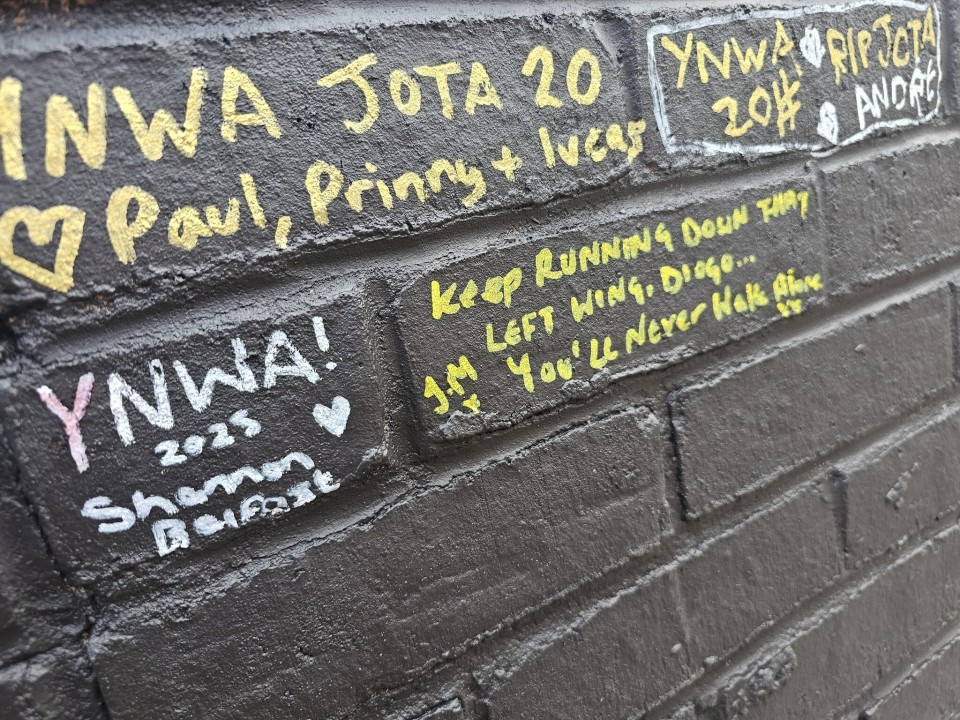 YNWA JOTA 20
♡ Paul, Prinny + lucas
YNWA RIP JOTA
20# ANDRE
KeeP RUNNING DOWN THAT
LEFT WING. DIOGO...
You'll Never Walk Alone
J.M x xx
YNWA!
2025
Shannon
Belfast